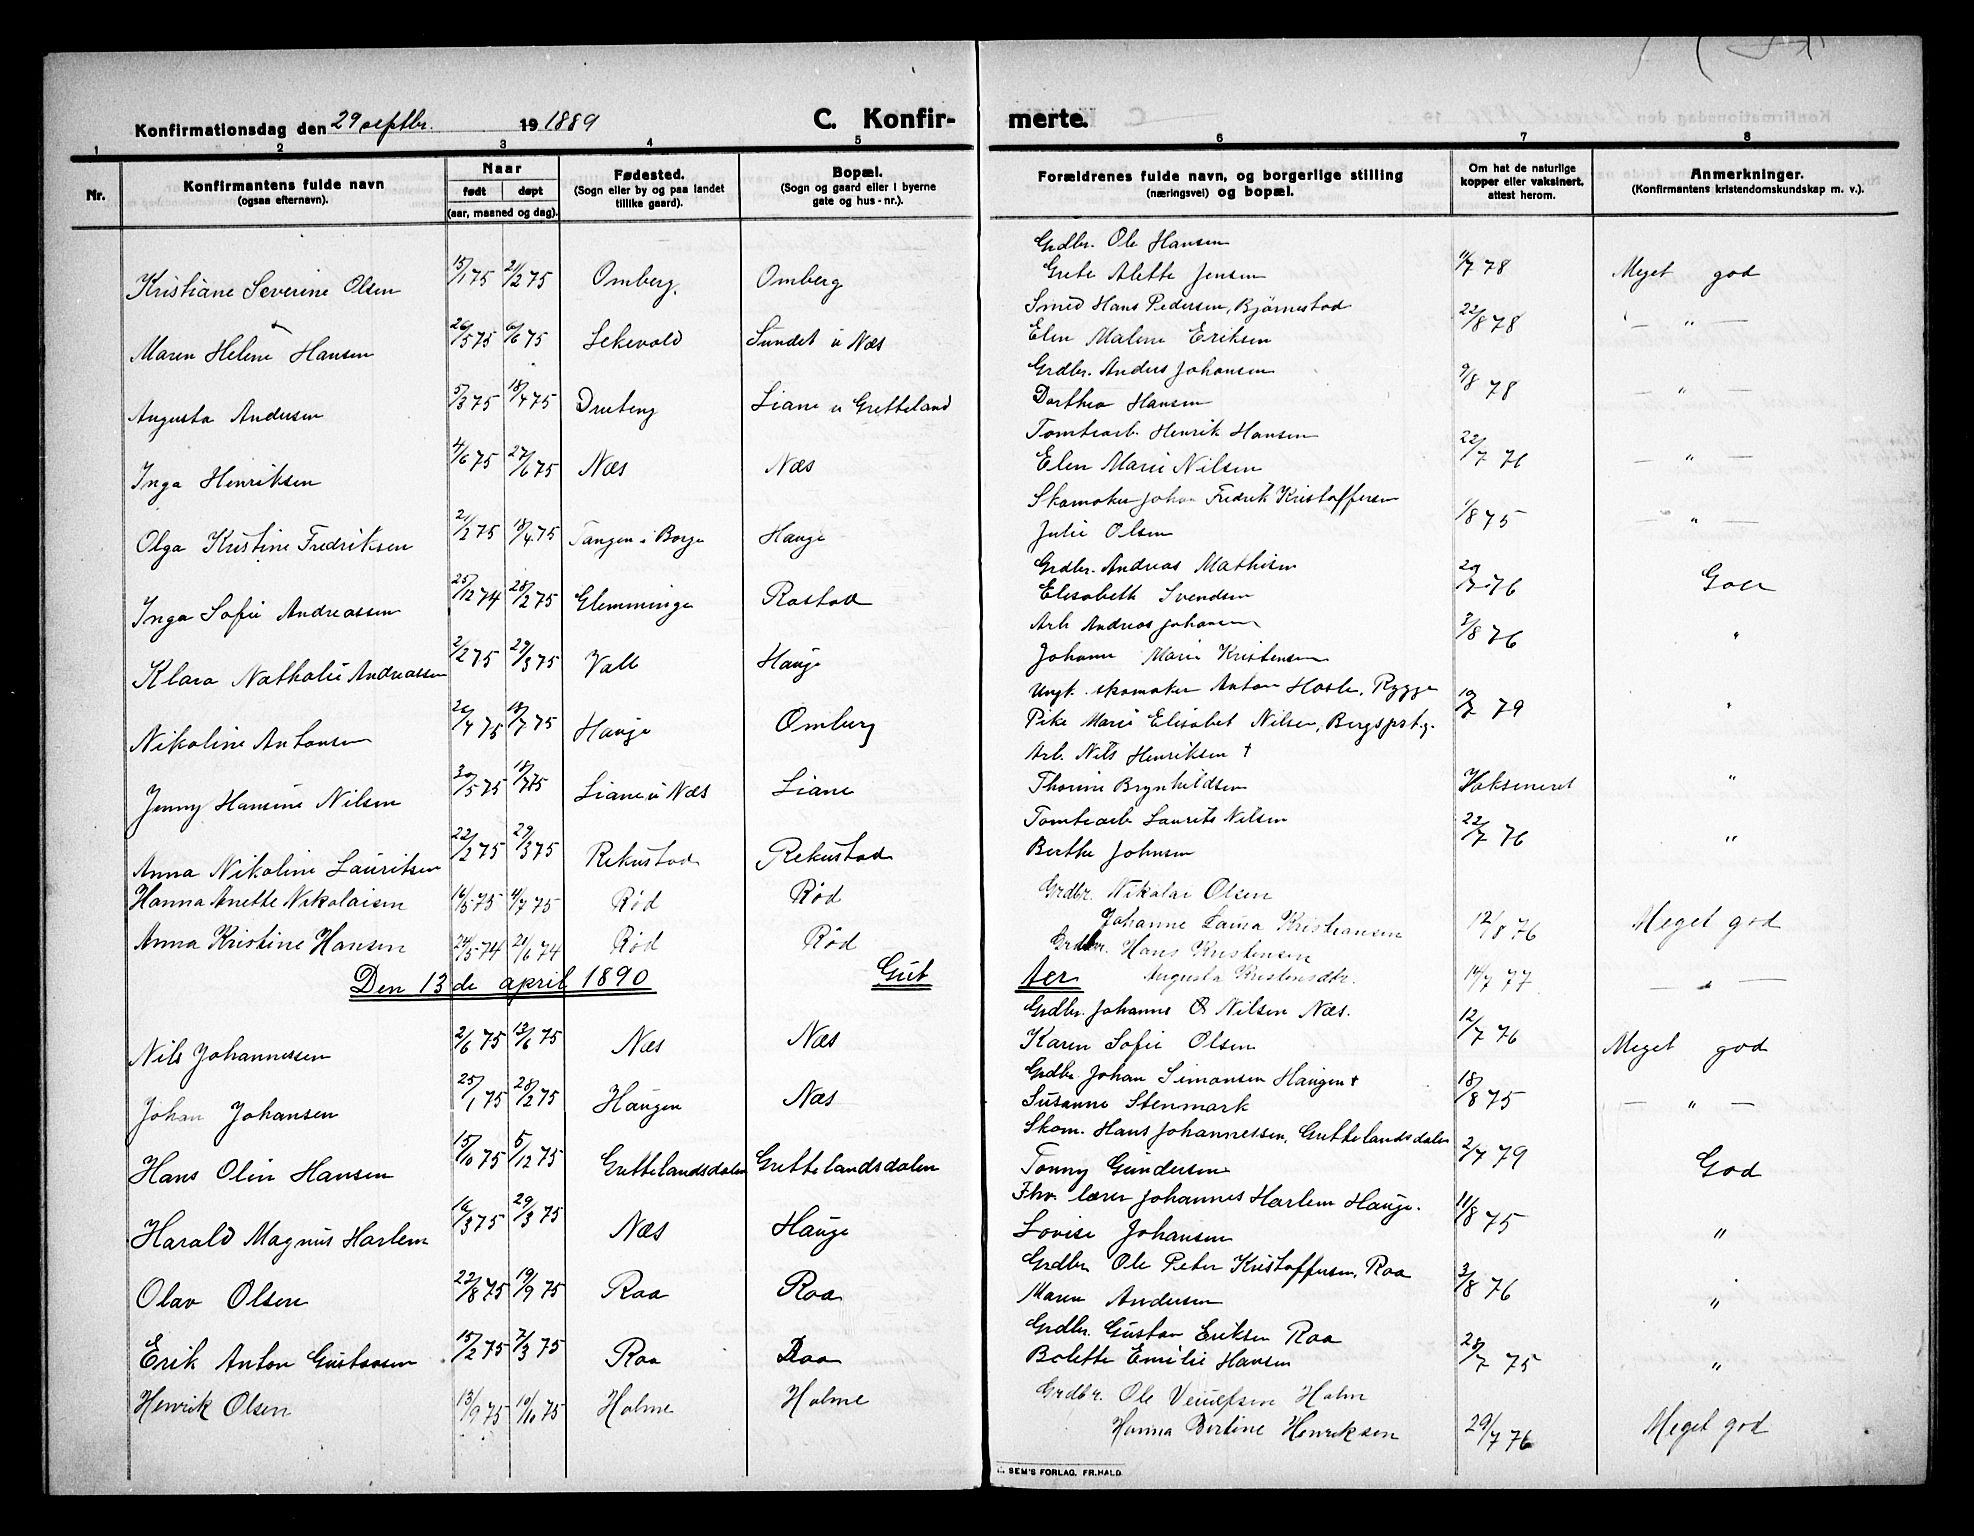 Konfirmationsdag den 29 septbr. 19 1889 C. Konfir- merte.
1 2 3 4 5 6 7 8
Nr. Konfirmantens fulde navn (ogsaa efternavn). Naar født døpt (aar, maaned og dag). Fødested. (Sogn eller by og paa landet tillike gaard). Bopæl. (Sogn og gaard eller i byerne gate og hus-nr.). Forældrenes fulde navn, og borgerlige stilling (næringsvei) og bopæl. Om hat de naturlige kopper eller vaksinert, attest herom. Anmerkninger. (Konfirmantens kristendomskundskap m. v.).
Grdbr. Ole Hansen
Kristiane Severine Olsen 15/1 75 21/2 75 Omberg. Omberg Grete Alette Jensen 11/7 78 Meget god
Smed Hans Pedersen, Bjørnestad
Maren Helene Hansen 26/5 75 6/6 75 Lekevold Sundet u Næs Elen Malene Eriksen 22/8 78 — " —
Grdbr. Anders Johansen
Augusta Andersen 5/3 75 18/4 75 Liane u Gretteland Dorthea Hansen 9/8 78 — " —
Tomtearb. Henrik Hansen
Inga Henriksen 4/6 75 27/6 75 Næs Næs Elen Marie Nilsen 22/7 76 — " —
Skomaker Johan Fredrik Kristoffersen
Olga Kristine Fredriksen 21/2 75 18/4 75 Tangen i Borge Hauge Julie Olsen 1/8 75 — " —
Grdbr. Andreas Mathisen
Inga Sofie Andreassen 25/12 74 28/2 75 Glemminge Rostad Elisabeth Svendsen 20/7 76 God
Arb Andreas Johansen
Klara Nathalie Andreassen 2/2 75 29/3 75 Valle Hauge Johanne Marie Kristensen 3/8 76 "
Ungk. skomaker Anton Hasle, Rygge
Nikoline Antonsen 26/4 75 18/7 75 Hauge Omberg Pike Marie Elisabet Nilsen, Bergsprstg. 10/7 79 "
Arb. Nils Henriksen †
Jenny Hansine Nilsen 30/5 75 18/7 75 Liane u Næs Liane Thorine Brynhildsen Vaksineret "
Tomtearb Laurits Nilsen
Anna Nikoline Lauritsen 22/2 75 29/3 75 Rekustad Rekustad Berthe Johnsen 22/7 76 "
Grdbr. Nikolai Olsen
Hanna Anette Nikolaisen 16/5 75 4/7 75 Rød Rød Johanne Laura Kristiansen 12/8 76 Meget god
Grdbr. Hans Kristensen
Anna Kristine Hansen 24/5 74 21/6 74 Rød Rød Augusta Kristensdtr. 14/7 77 — " —
Den 13de april 1890 Gut ter
Grdbr. Johannes Nilsen Næs.
Nils Johannessen 2/6 75 13/6 75 Næs Næs Karen Sofie Olsen 12/7 76 Meget god
Grdbr. Johan Simonsen Haugen †
Johan Johansen 25/1 75 28/2 75 Haugen Næs Susanne Stenmark 18/8 75 — " —
Skom. Hans Johannessen, Grettelandsdalen
Hans Olin Hansen 15/10 75 5/12 75 Grettelandsdalen Grettelandsdalen Tonny Gundersen 2/7 79 God
Fhv. lærer Johannes Harlem Hauge.
Harald Magnus Harlem 16/3 75 29/3 75 Næs Hauge Lovise Johansen 11/8 75 "
Grdbr Ole Peter Kristoffersen, Raa
Olav Olsen 22/8 75 19/9 75 Raa Raa Maren Andersen 3/8 76 "
Grdbr. Gustav Eriksen Raa
Erik Anton Gustavsen 15/2 75 7/3 75 Raa Raa Bolette Emilie Hansen 28/7 75 "
Grdbr. Ole Holm
Henrik Olsen 13/9 75 10/10 75 Holme Holme Hanna Bertine Henriksen 29/7 76 Meget god
SEM'S FORLAG. FR.HALD